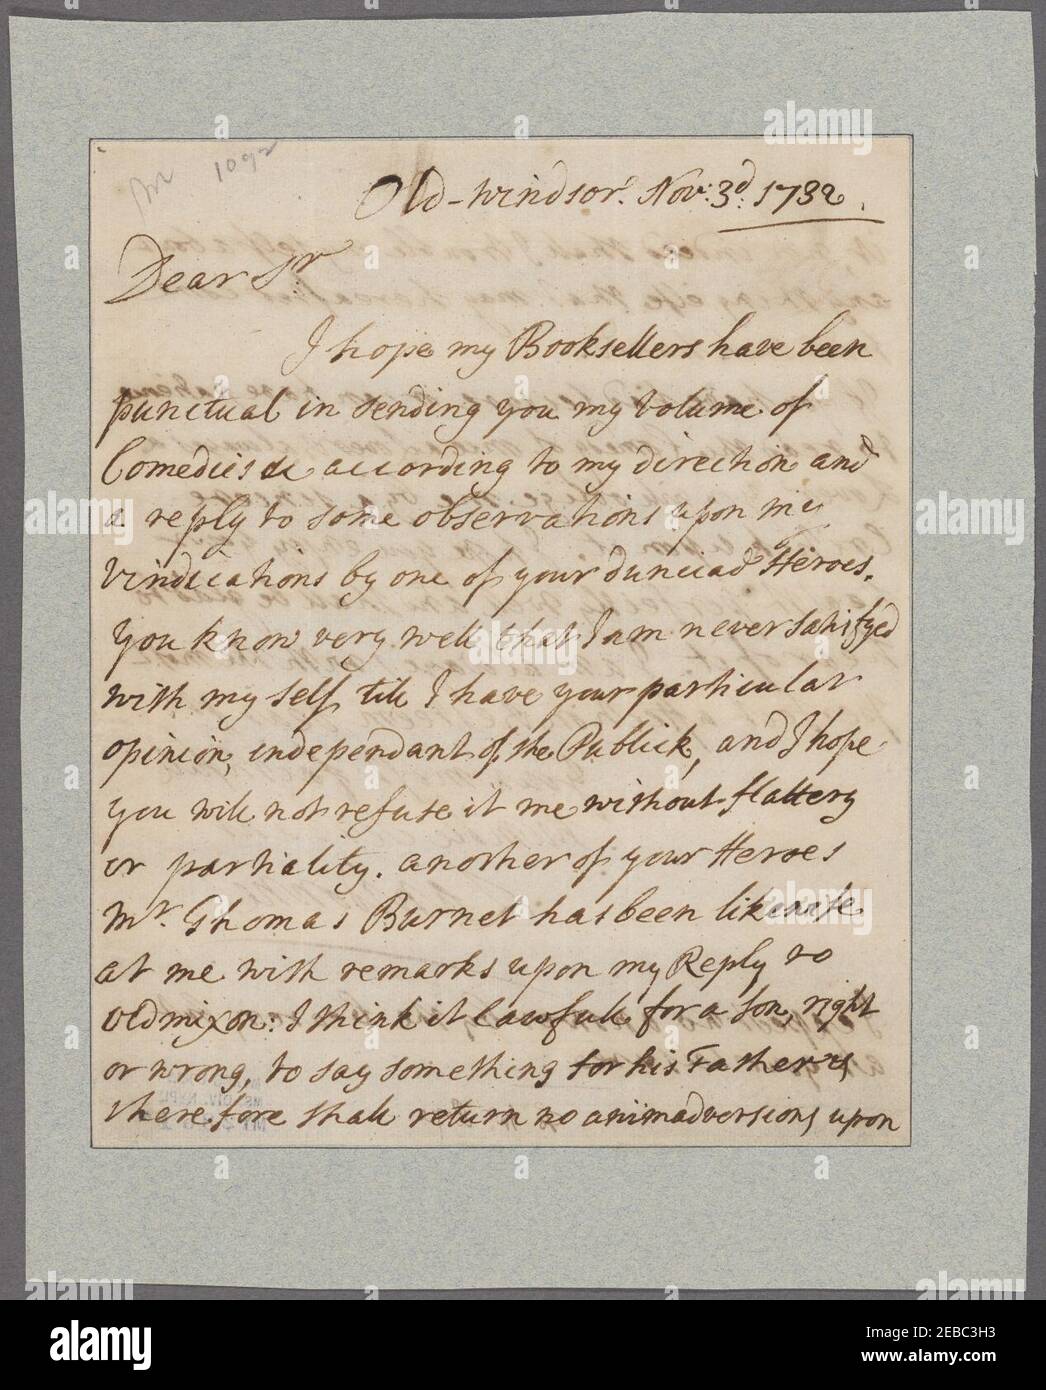 1092
Old-Windsor. Nov: 3d. 1732.
Dear Sr
I hope my Booksellers have been
punctual in sending you my volume of
Comedies &c according to my direction and
a reply to some observations upon my
vindications by one of your dunciad Heroes.
you know very well that I am never satisfyed
with my self till I have your particular
opinion, independant of the Publick, and I hope
you will not refuse it me without flattery
or partiality. another of your Heroes
Mr. Thomas Burnet has been likewise
at me with remarks upon my Reply to
oldmixon: I think it lawfull for a son, right
or wrong, to say something for his Father &
therefore shall return no animadversions upon
alamy
Image ID: 2EBC3H3
www.alamy.com